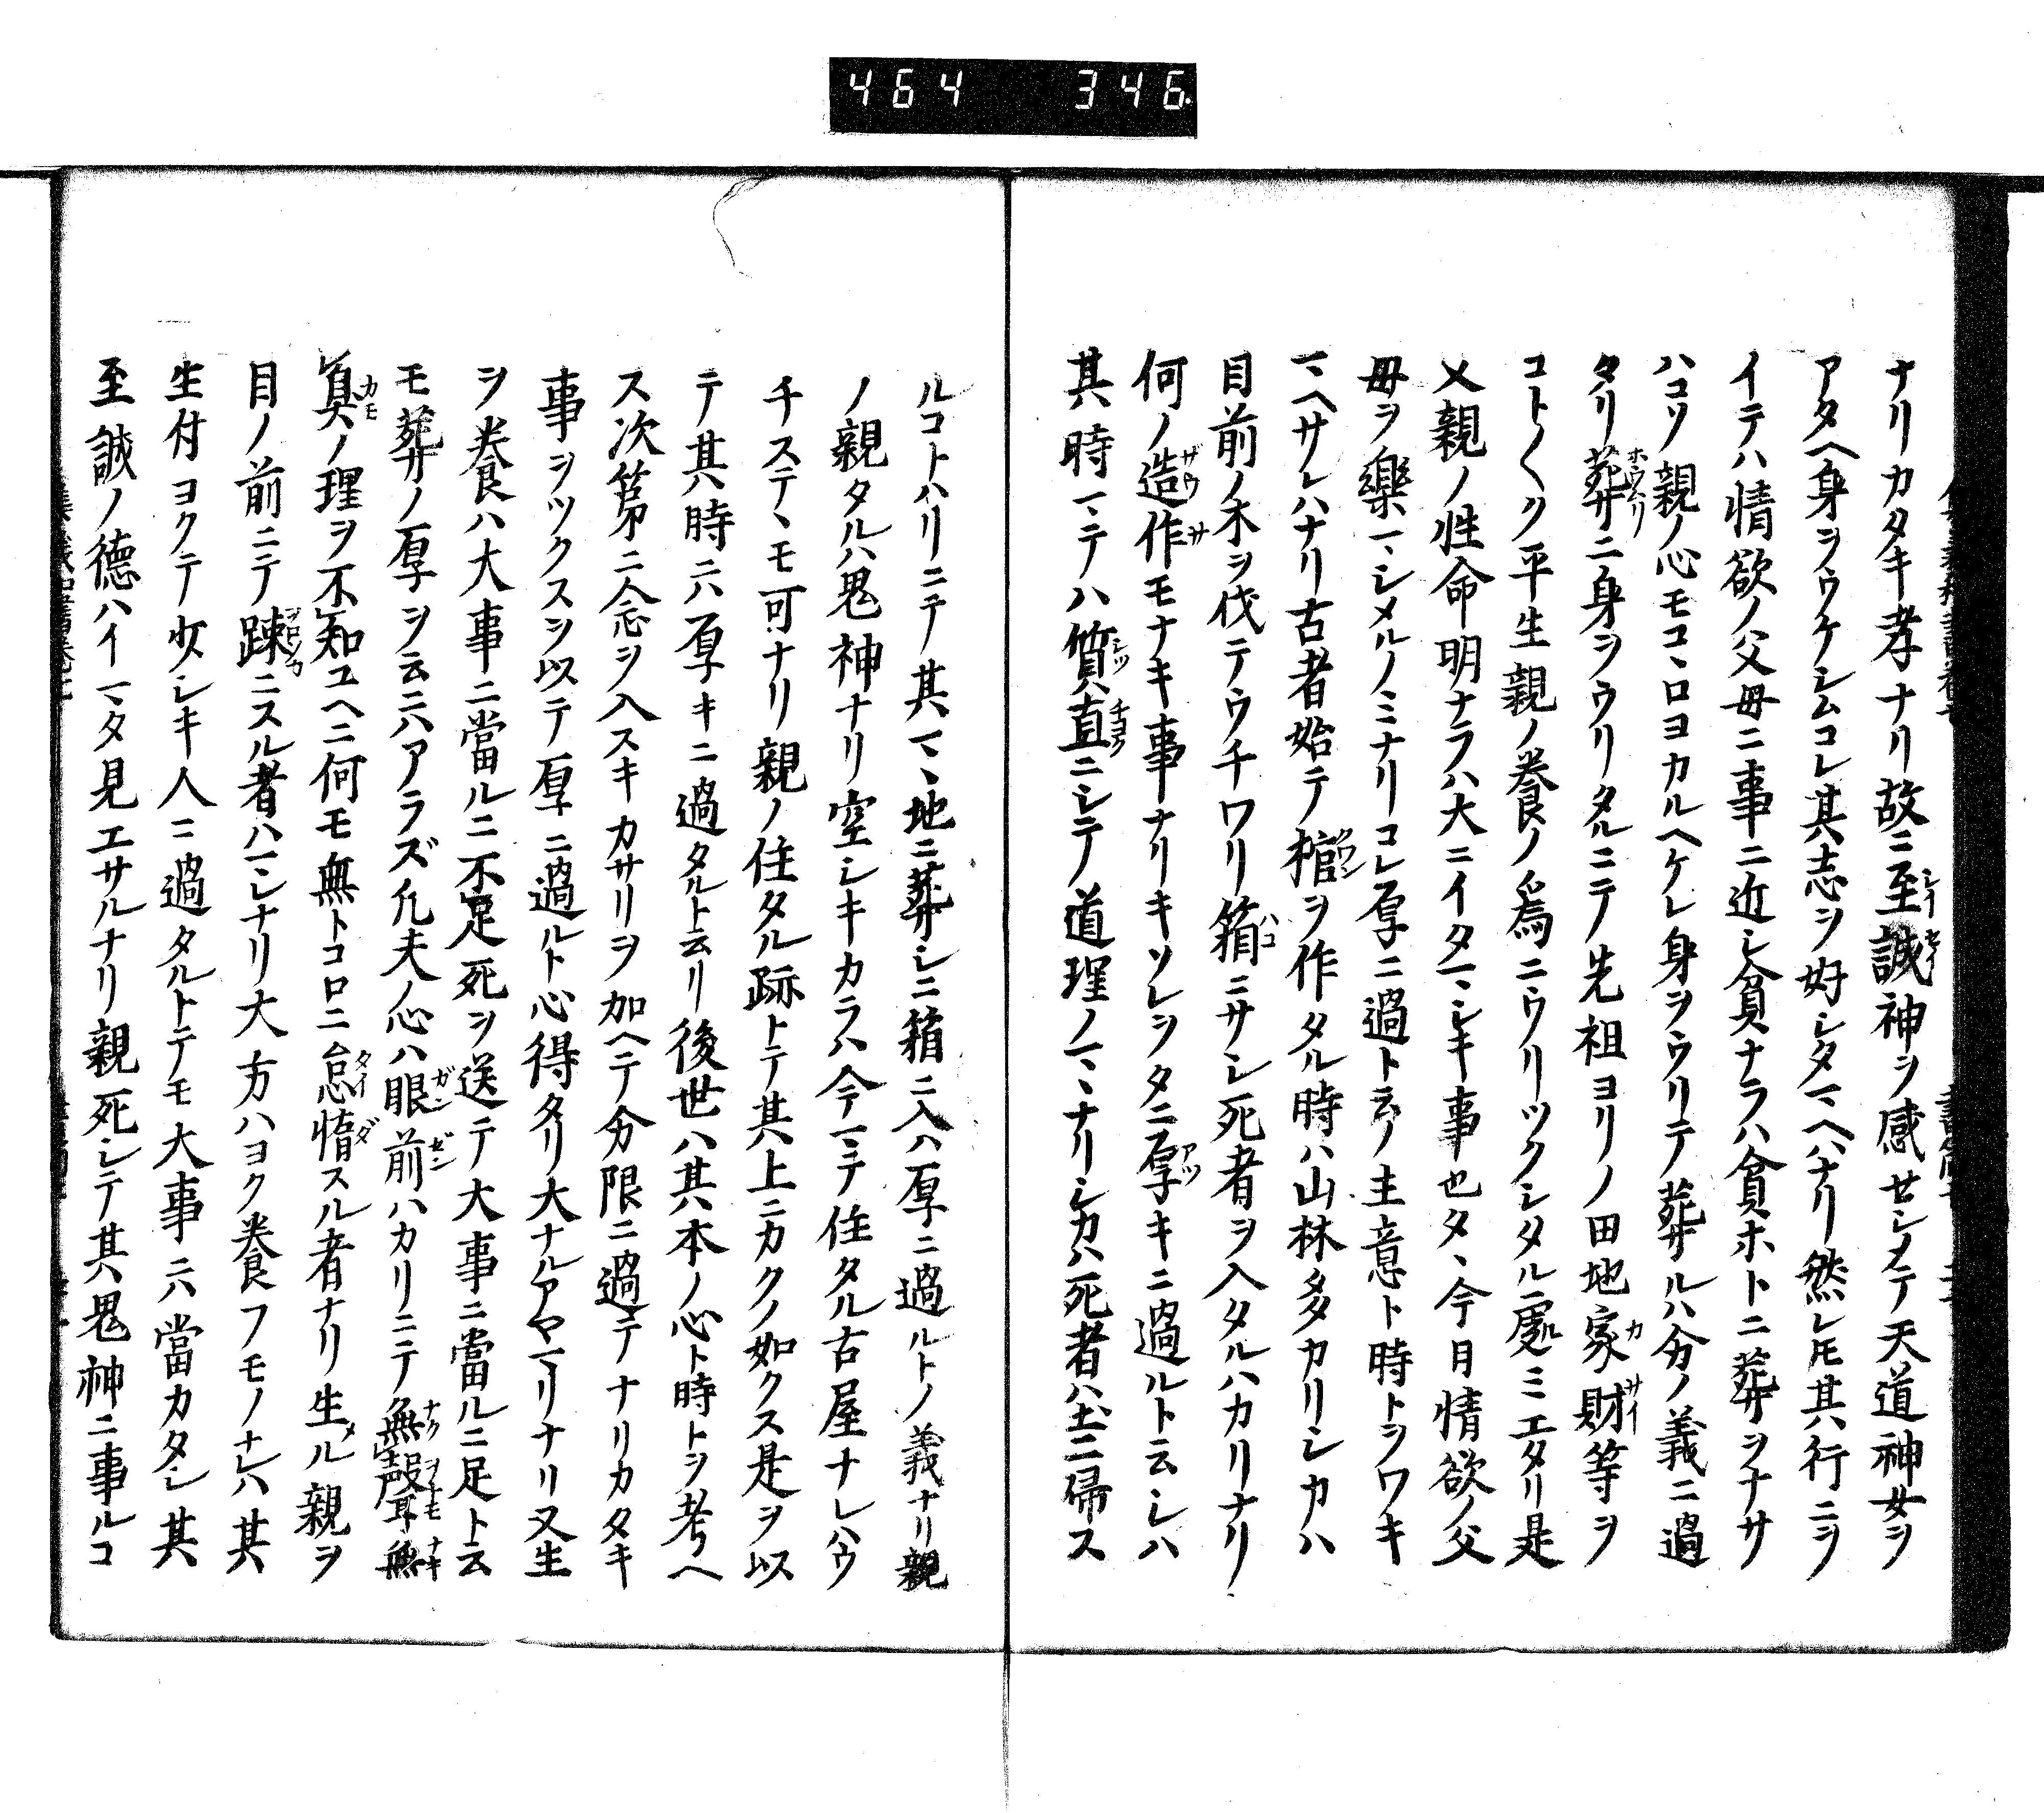 464 346
ナリカタキ孝ナリ故ニ至誠神ヲ感セシメテ天道神女ヲ
アタヘ身ヲウケシムコレ其志ヲ好シタマヘハナリ然レ𪜈其行ニヲ
イテハ情欲ノ父母ニ事ニ近シ貧ナラハ貧ホトニ葬ヲナサ
ハコソ親ノ心モコヽロヨカルヘケレ身ヲウリテ葬ルハ分ノ義ニ過
タリ葬ニ身ヲウリタルニテ先祖ヨリノ田地家財等ヲ
コト〱ク平生親ノ養ノ爲ニウリツクシタル處ミエタリ是
父親ノ性命明ナラハ大ニイタマシキ事也タヽ今日情欲ノ父
母ヲ樂マシメルノミナリコレ厚ニ過ト云ノ主意ト時トヲワキ
マヘサレハナリ古者始テ棺ヲ作タル時ハ山林多カリシカハ
目前ノ木ヲ伐テウチワリ箱ニサシ死者ヲ入タルハカリナリ
何ノ造作モナキ事ナリキソレヲタニ厚キニ過ルト云シハ
其時マテハ質直ニシテ道理ノマヽナリシカハ死者ハ土ニ帰ス
ルコトハリニテ其マヽ地ニ葬シニ箱ニ入ハ厚ニ過ルトノ義ナリ親
ノ親タルハ鬼神ナリ空シキカラハ今マテ住タル古屋ナレハウ
チステヽモ可ナリ親ノ住タル跡トテ其上ニカクノ如クス是ヲ以
テ其時ニハ厚キニ過タルト云リ後世ハ其本ノ心ト時トヲ考ヘ
ス次第ニ念ヲ入スキカサリヲ加ヘテ分限ニ過テナリカタキ
事ヲツクスヲ以テ厚ニ過ルト心得タリ大ナルアヤマリナリ又生
ヲ養ハ大事ニ當ルニ不足死ヲ送テ大事ニ當ルニ足ト云
モ葬ノ厚ヲ云ニハアラズ凡夫ノ心ハ眼前ハカリニテ無聲耳無
臭ノ理ヲ不知ユヘニ何モ無トコロニ怠惰スル者ナリ生ル親ヲ
目ノ前ニテ踈ニスル者ハマレナリ大方ハヨク養フモノナレハ其
生付ヨクテ少シキ人ニ過タルトテモ大事ニハ當カタシ其
至誠ノ德ハイマタ見エサルナリ親死シテ其鬼神ニ事ルコ